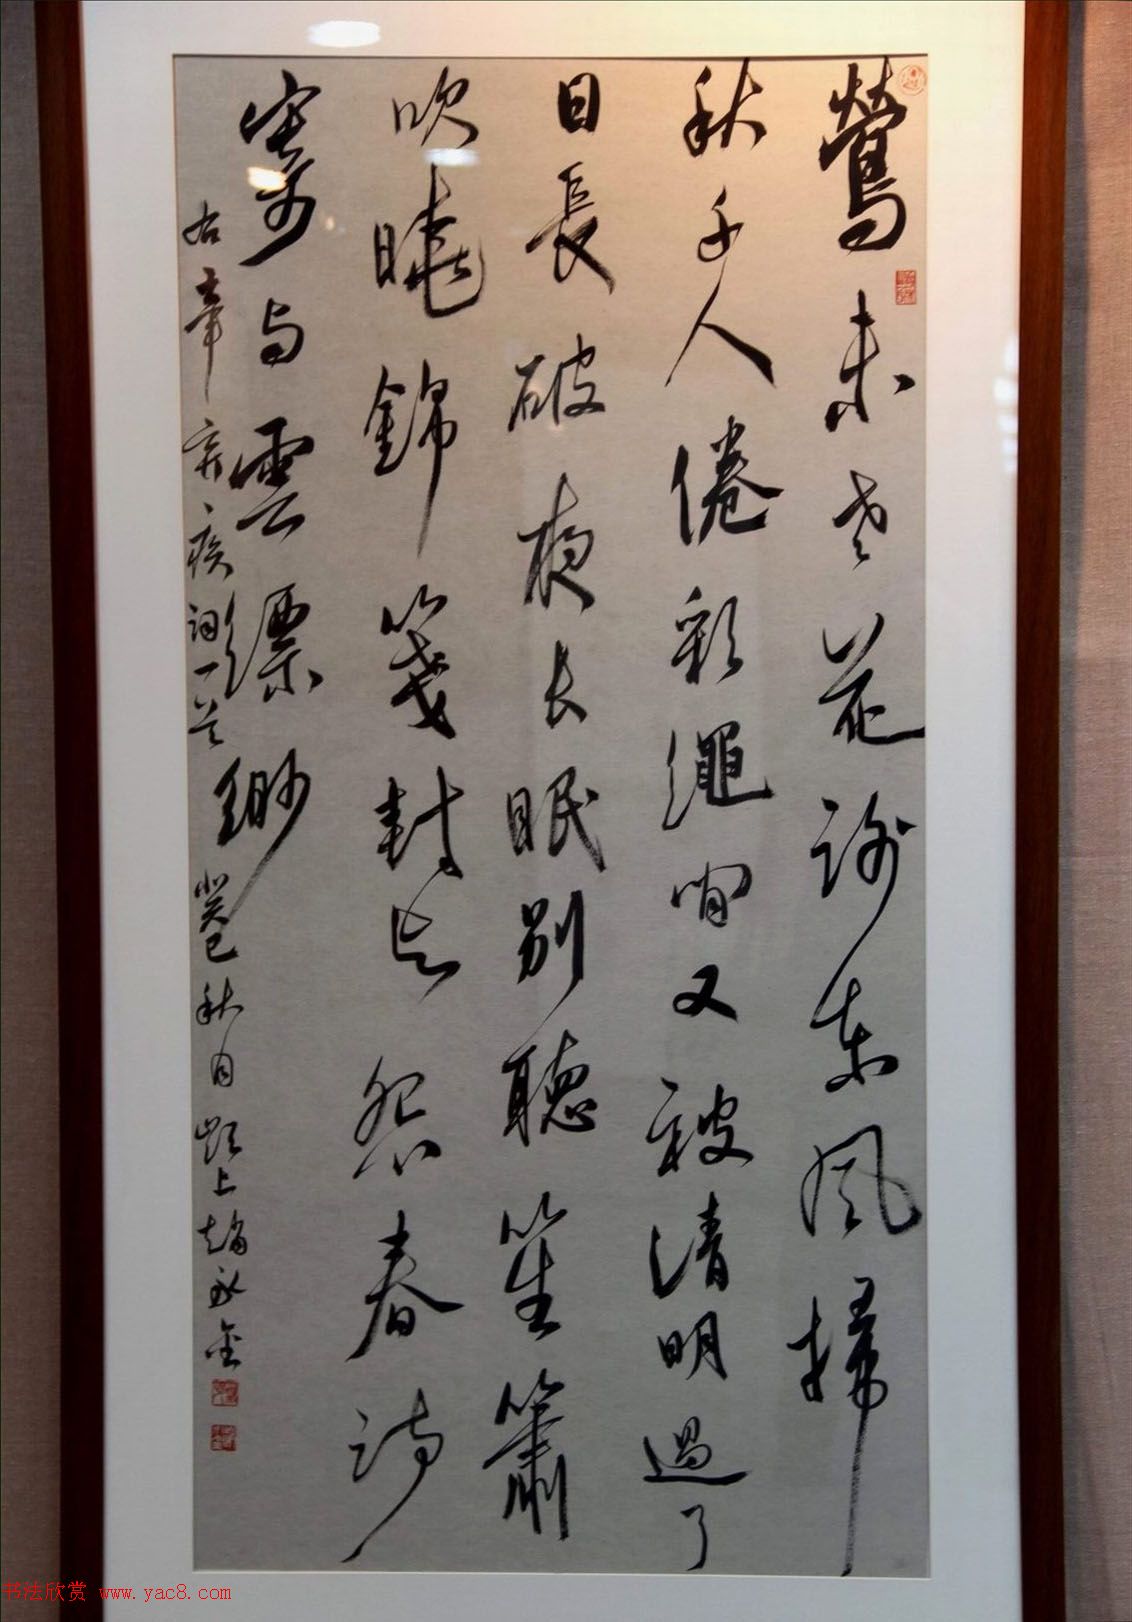 鶯未老花謝東風掃
秋千人倦彩繩閒又被清明過了
日長破夜长眠别聽笙簫
吹曉錦箋封与怨春詩
寄与雲縹緲
右辛弃疾詞一首 癸巳秋月 上趙永金
书法欣赏 www.yac8.com